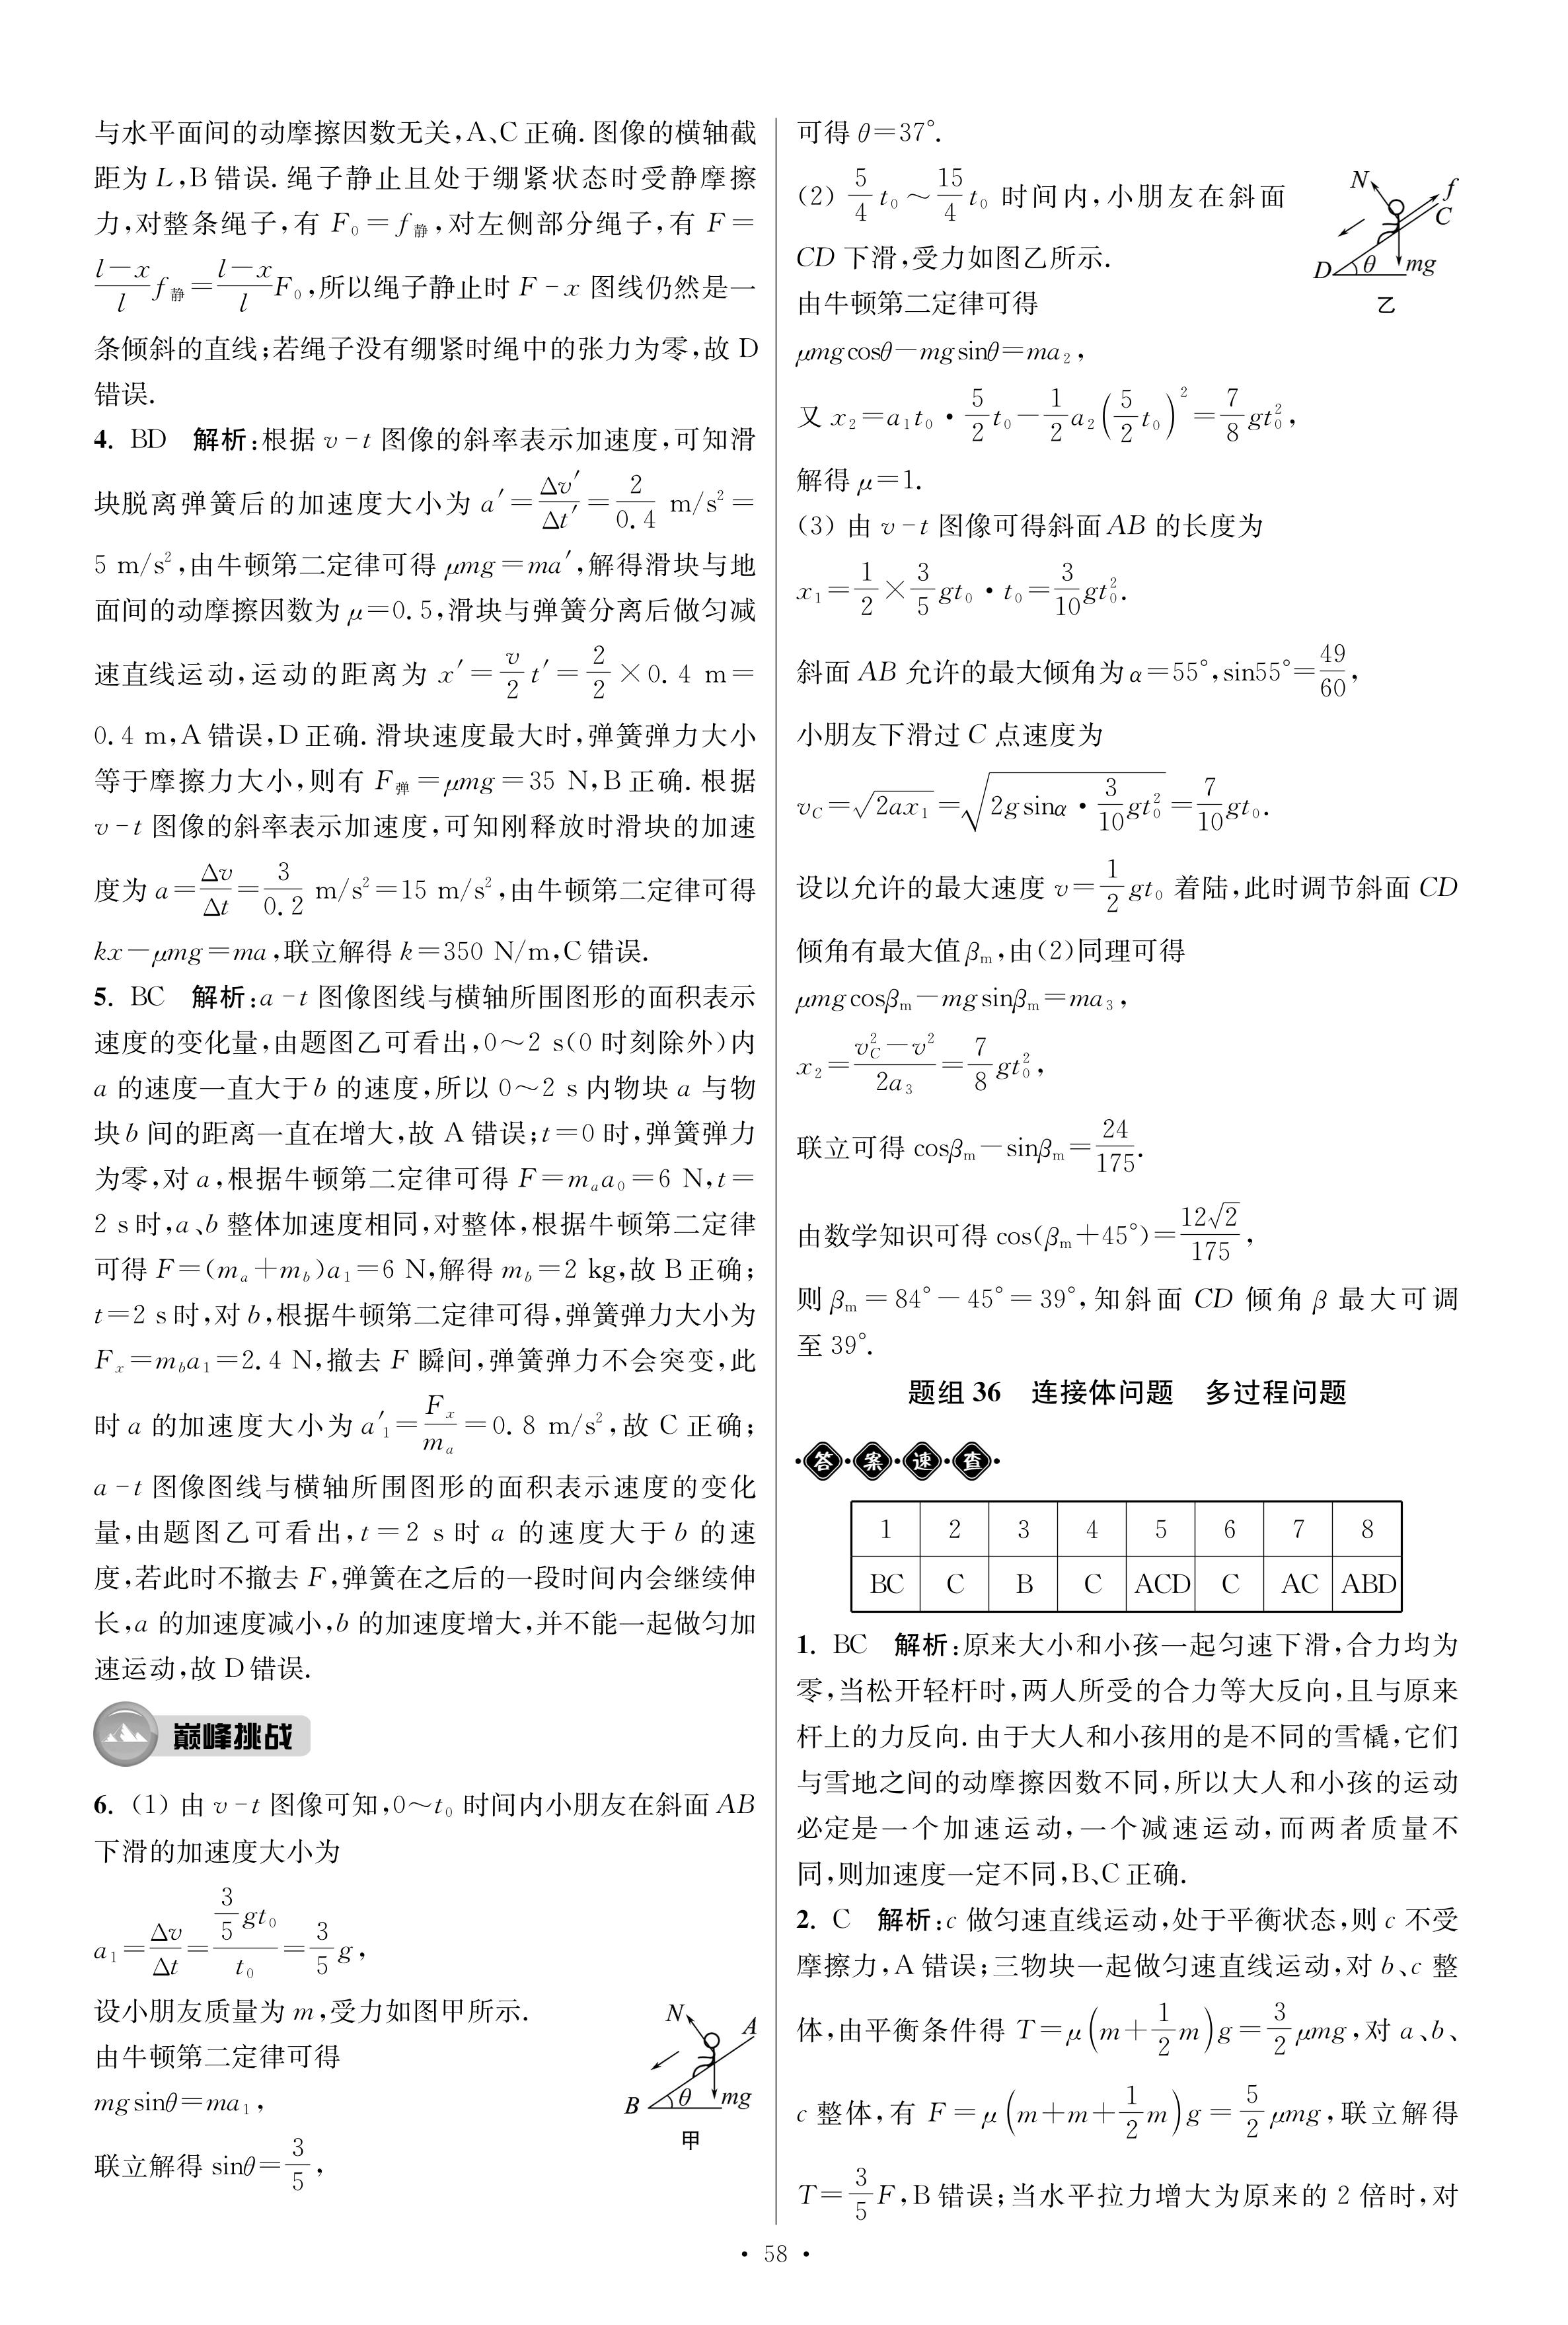 与水平面间的动摩擦因数无关,A、C正确. 图像的横轴截
距为 L,B错误. 绳子静止且处于绷紧状态时受静摩擦
力,对整条绳子,有 F₀=f静,对左侧部分绳子,有 F=
(l-x)/l f静=(l-x)/l F₀,所以绳子静止时 F-x 图线仍然是一
条倾斜的直线;若绳子没有绷紧时绳中的张力为零,故 D
错误.
4. BD 解析:根据 v-t 图像的斜率表示加速度,可知滑
块脱离弹簧后的加速度大小为 a′=Δv′/Δt′=2/0.4 m/s²=
5 m/s²,由牛顿第二定律可得 μmg=ma′,解得滑块与地
面间的动摩擦因数为 μ=0.5,滑块与弹簧分离后做匀减
速直线运动,运动的距离为 x′=v/2 t′=2/2×0.4 m=
0.4 m,A错误,D正确. 滑块速度最大时,弹簧弹力大小
等于摩擦力大小,则有 F弹=μmg=35 N,B正确. 根据
v-t 图像的斜率表示加速度,可知刚释放时滑块的加速
度为 a=Δv/Δt=3/0.2 m/s²=15 m/s²,由牛顿第二定律可得
kx-μmg=ma,联立解得 k=350 N/m,C错误.
5. BC 解析:a-t 图像图线与横轴所围图形的面积表示
速度的变化量,由题图乙可看出,0~2 s(0时刻除外)内
a 的速度一直大于 b 的速度,所以 0~2 s内物块 a 与物
块 b 间的距离一直在增大,故 A错误;t=0时,弹簧弹力
为零,对 a,根据牛顿第二定律可得 F=mₐa₀=6 N,t=
2 s时,a、b 整体加速度相同,对整体,根据牛顿第二定律
可得 F=(m_a+m_b)a₁=6 N,解得 m_b=2 kg,故 B正确;
t=2 s时,对 b,根据牛顿第二定律可得,弹簧弹力大小为
F_x=m_b a₁=2.4 N,撤去 F 瞬间,弹簧弹力不会突变,此
时 a 的加速度大小为 a′₁=F_x/m_a=0.8 m/s²,故 C 正确;
a-t 图像图线与横轴所围图形的面积表示速度的变化
量,由题图乙可看出,t=2 s时 a 的速度大于 b 的速
度,若此时不撤去 F,弹簧在之后的一段时间内会继续伸
长,a 的加速度减小,b 的加速度增大,并不能一起做匀加
速运动,故 D错误.
巅峰挑战
6. (1) 由 v-t 图像可知,0~t₀ 时间内小朋友在斜面 AB
下滑的加速度大小为
a₁=Δv/Δt=(3/5 gt₀)/t₀=3/5 g,
设小朋友质量为 m,受力如图甲所示.
由牛顿第二定律可得
mgsinθ=ma₁,
联立解得 sinθ=3/5,
N
A
B
θ
mg
甲
可得 θ=37°.
(2) 5/4 t₀~15/4 t₀ 时间内,小朋友在斜面
CD 下滑,受力如图乙所示.
由牛顿第二定律可得
μmgcosθ-mgsinθ=ma₂,
N
f
C
D
θ
mg
乙
又 x₂=a₁t₀·5/2 t₀-1/2 a₂(5/2 t₀)²=7/8 gt₀²,
解得 μ=1.
(3) 由 v-t 图像可得斜面 AB 的长度为
x₁=1/2×3/5 gt₀·t₀=3/10 gt₀².
斜面 AB 允许的最大倾角为 α=55°,sin55°=49/60,
小朋友下滑过 C 点速度为
v_C=√(2ax₁)=√(2gsinα·3/10 gt₀²)=7/10 gt₀.
设以允许的最大速度 v=1/2 gt₀ 着陆,此时调节斜面 CD
倾角有最大值 β_m,由(2)同理可得
μmgcosβ_m-mgsinβ_m=ma₃,
x₂=(v_C²-v²)/(2a₃)=7/8 gt₀²,
联立可得 cosβ_m-sinβ_m=24/175.
由数学知识可得 cos(β_m+45°)=12√2/175,
则 β_m=84°-45°=39°,知斜面 CD 倾角 β 最大可调
至 39°.
题组 36 连接体问题 多过程问题
·答·案·速·查·
1 2 3 4 5 6 7 8
BC C B C ACD C AC ABD
1. BC 解析:原来大小和小孩一起匀速下滑,合力均为
零,当松开轻杆时,两人所受的合力等大反向,且与原来
杆上的力反向. 由于大人和小孩用的是不同的雪橇,它们
与雪地之间的动摩擦因数不同,所以大人和小孩的运动
必定是一个加速运动,一个减速运动,而两者质量不
同,则加速度一定不同,B、C正确.
2. C 解析:c 做匀速直线运动,处于平衡状态,则 c 不受
摩擦力,A错误;三物块一起做匀速直线运动,对 b、c 整
体,由平衡条件得 T=μ(m+1/2 m)g=3/2 μmg,对 a、b、
c 整体,有 F=μ(m+m+1/2 m)g=5/2 μmg,联立解得
T=3/5 F,B错误;当水平拉力增大为原来的 2 倍时,对
· 58 ·